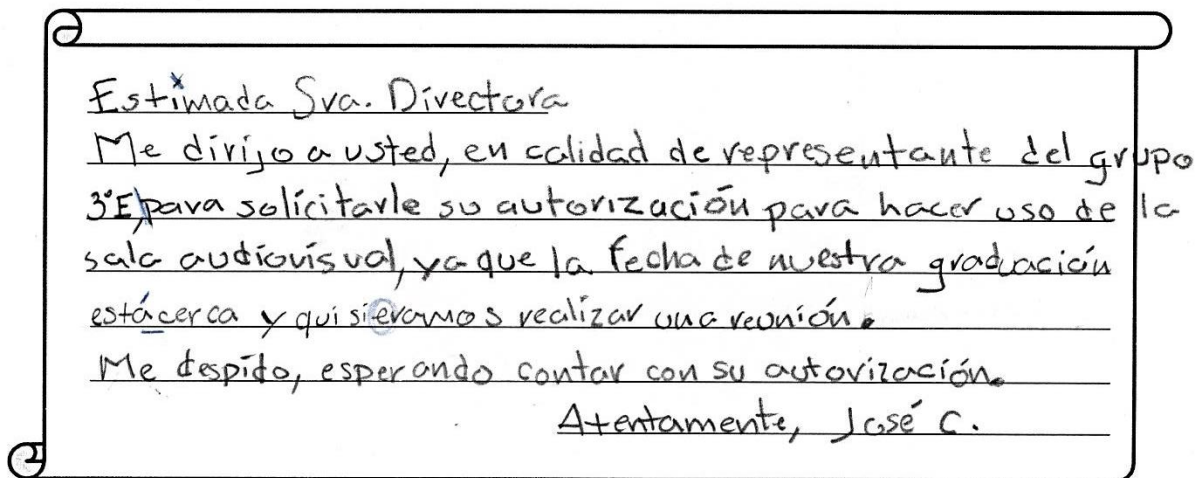 Estimada Sra. Directora
Me dirijo a usted, en calidad de representante del grupo
3°E, para solicitarle su autorización para hacer uso de la
sala audiovisual, ya que la fecha de nuestra graduación
está cerca y quisieramos realizar una reunión.
Me despido, esperando contar con su autorización.
Atentamente, José C.